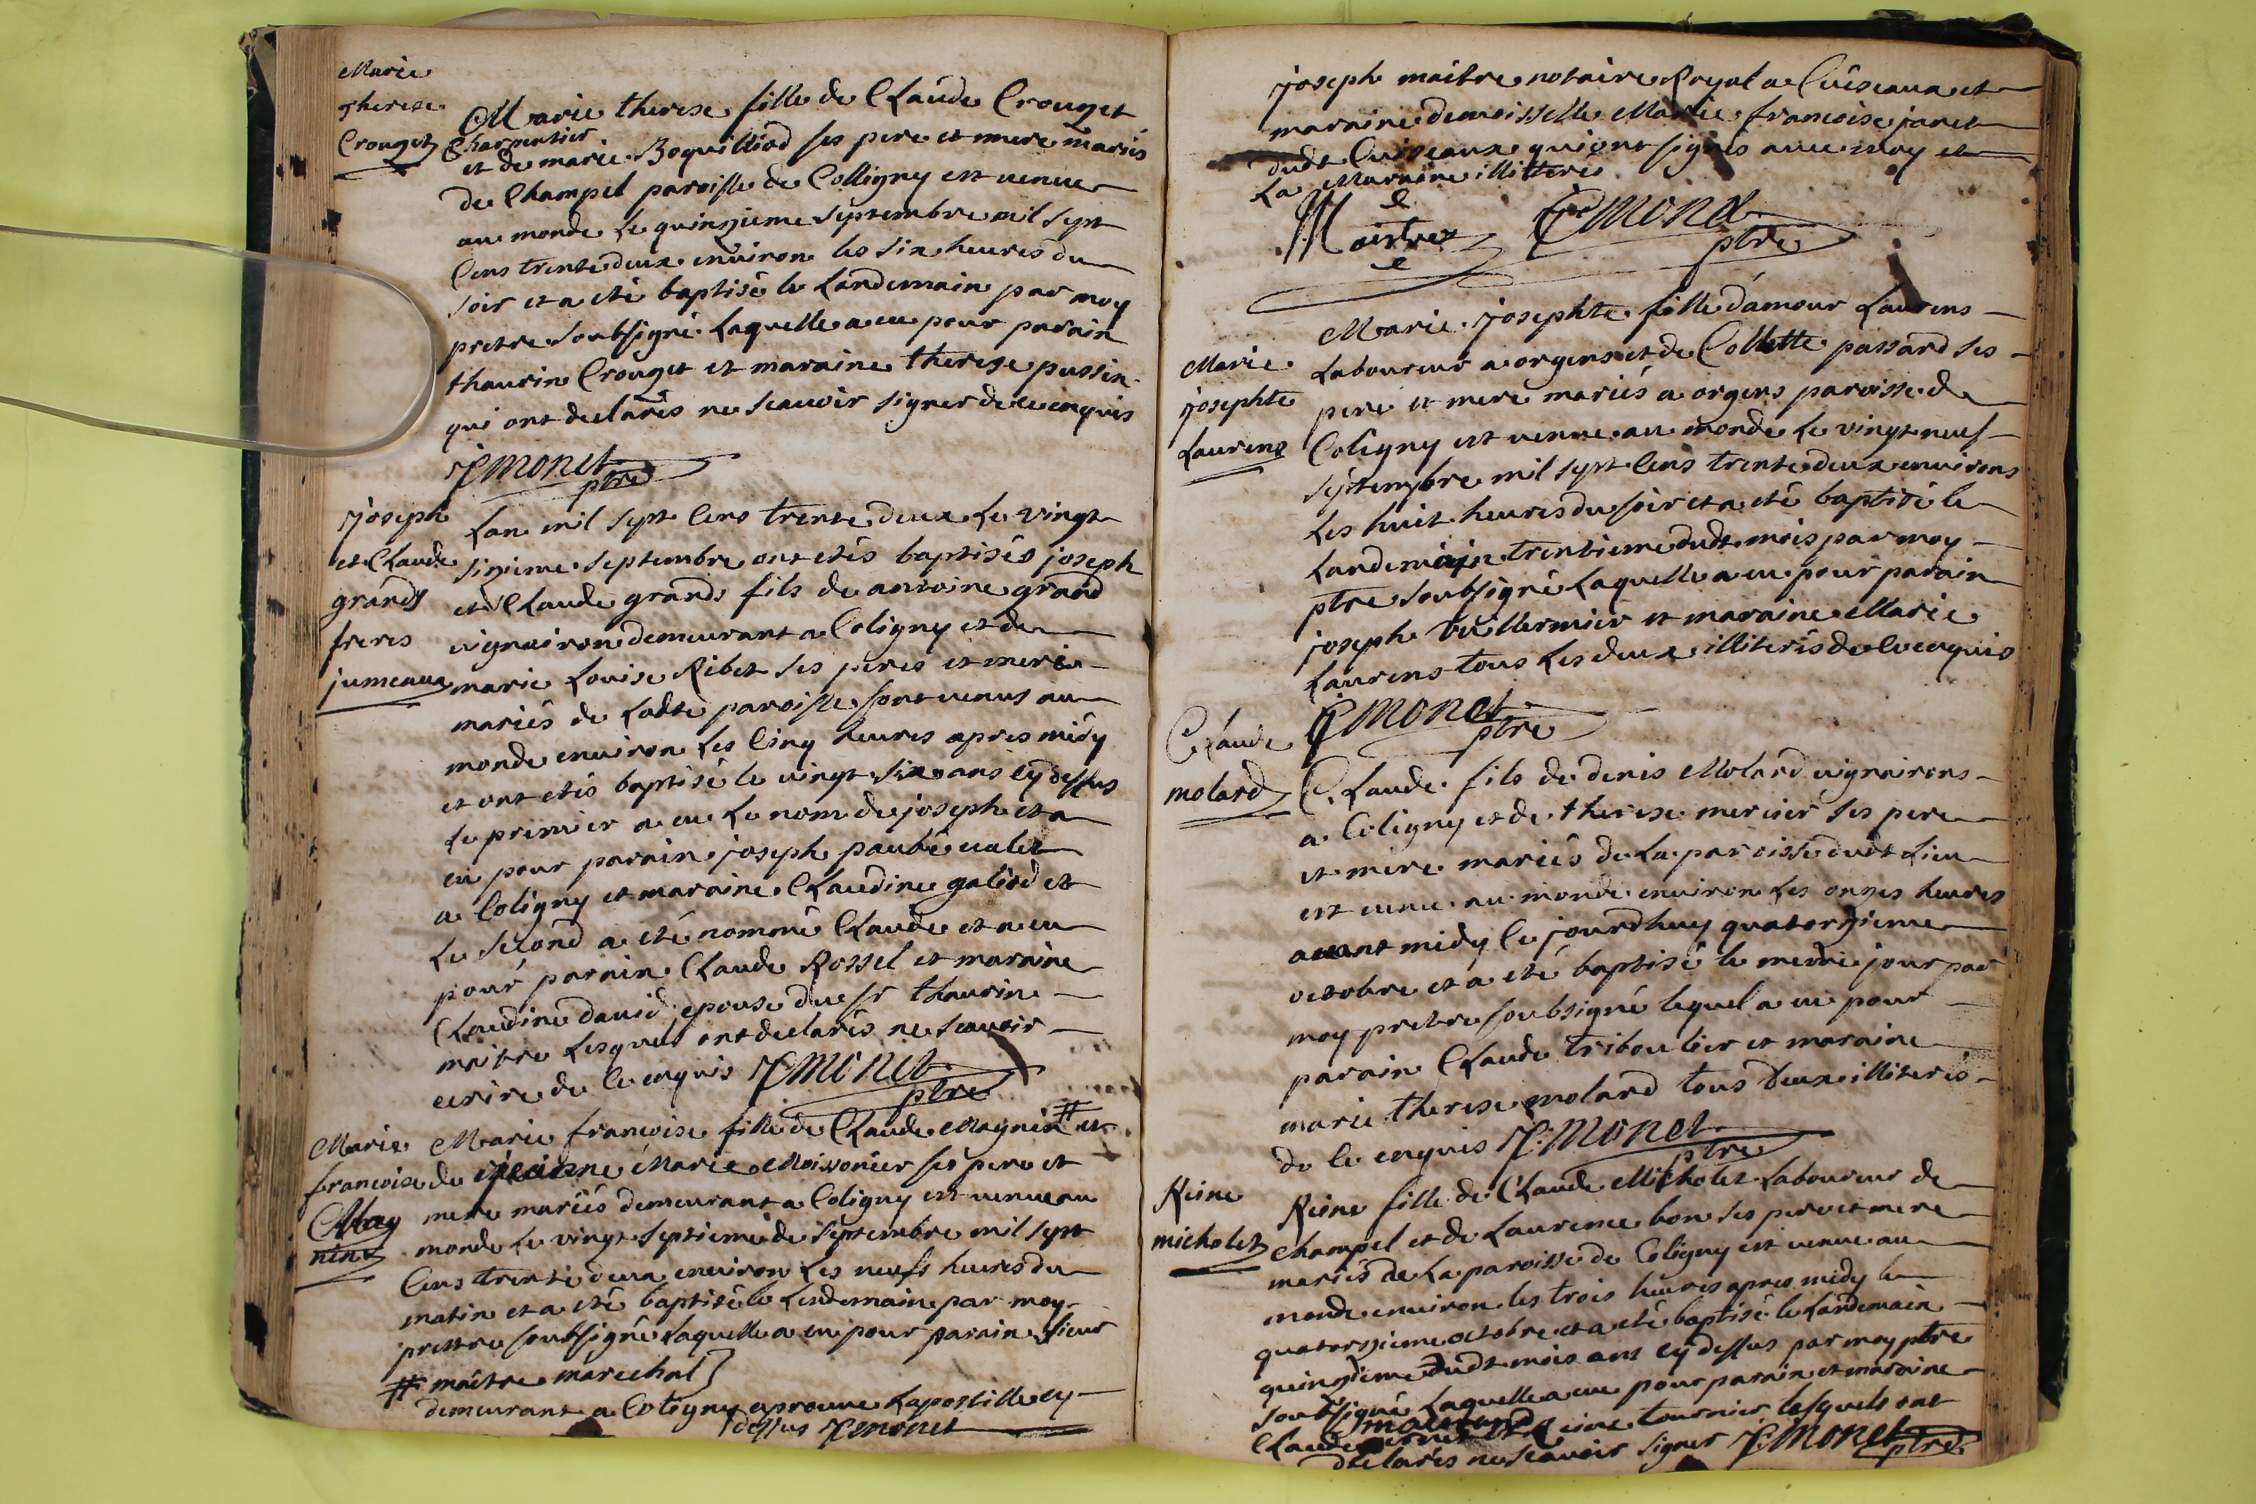 Marie
therese
Crouget
Marie therese fille de Claude Crouget
Charpentier
et de marie Boquilliod ses pere et mere mariés
de Champel paroisse de Colligny est venue
au monde le quinzieme septembre mil sept
Cens trente deux environ les six heures du
soir et a eté baptisé le Landemain par moy
pretre soubsigné Laquelle a eu pour parain
thaurin Crouget et maraine therese pussin
qui ont declarés ne scavoir signer de ce enquis
monet
ptre
joseph
et Claude
grands
freres
jumeaux
Lan mil sept Cens trente deux Le vingt
sixieme septembre ont etés baptisés joseph
et Claude grands fils de antoine grand
vignairon demeurant a Coligny et de
marie Louise Ribet ses peres et meres
mariés de Ladte paroisse sont venus au
monde environ Les Cinq heures apres midy
et ont etés baptisé le vingt six ans cy dessus
Le premier a eu Le nom de joseph et a
eu pour parain joseph paubé valet
a Coligny et maraine Claudine galiod et
Le second a eté nommé Claude et a eu
pour parain Claude Rossel et maraine
Claudine david epouse du sr thaurin
maitre Lesquel ont declarés ne scavoir
ecrire de Ce enquis monet
ptre
Marie
francoise
Mag
nin
Marie francoise fille de Claude Magnin # et
de jeanne Marie Moissonier ses pere et
mere mariés demeurant a Coligny est venue au
monde Le vingt septieme de septembre mil sept
Cens trente deux environ Les neufs heures du
matin et a eté baptisé le Lendemain par moy
prettre soubsigné Laquelle a eu pour parain sieur
# maitre marechal
demeurant a Coligny aprouve Lapostille cy
dessus monet
joseph maitre notaire Royal a Cuiseaux et
maraine demoisselle Marie francoise janet
dudt Cuiseaux qui ont signés avec moy et
La Maraine illitteré
Maistre
monet
ptre
Marie
josephte
Laurens
Marie josephte fille d'amour Laurens
Laboureur a orgens et de Collette passard ses
pere et mere mariés a orgens paroisse de
Coligny est venue au monde Le vingt neuf
septembre mil sept Cens trente deux environs
Les huit heures du soir et a eté baptisé le
Landemain trentieme dudt mois par moy
ptre soubsigné Laquelle a eu pour parain
joseph Vuillermier et maraine Marie
Laurens tous Les deux illiterés de ce enquis
monet
ptre
Claude
molard
Claude fils de denis Molard vignairons
a Coligny et de therese mercier ses pere
et mere mariés de La paroisse dudt Lieu
est venu au monde environ Les onzes heures
avant midy Ce jourdhuy quatorzieme
octobre et a eté baptisé le meme jour par
moy pretre soubsigné lequel a eu pour
parain Claude triboulier et maraine
marie therese molard tous deux illiterés
de Ce enquis monet
ptre
Reine
micholet
Reine fille de Claude Micholet Laboureur de
Champel et de Laurence bon ses pere et mere
mariés de La paroisse de Coligny est venue au
monde environ les trois heures apres midy le
quatorzieme octobre et a eté baptisé le Landemain
quinzieme dudt mois ans cy dessus par moy ptre
soubsigné Laquelle a eu pour parain et maraine
Claude Reine tournier lesquels ont
declarés ne scavoir signer monet
ptre